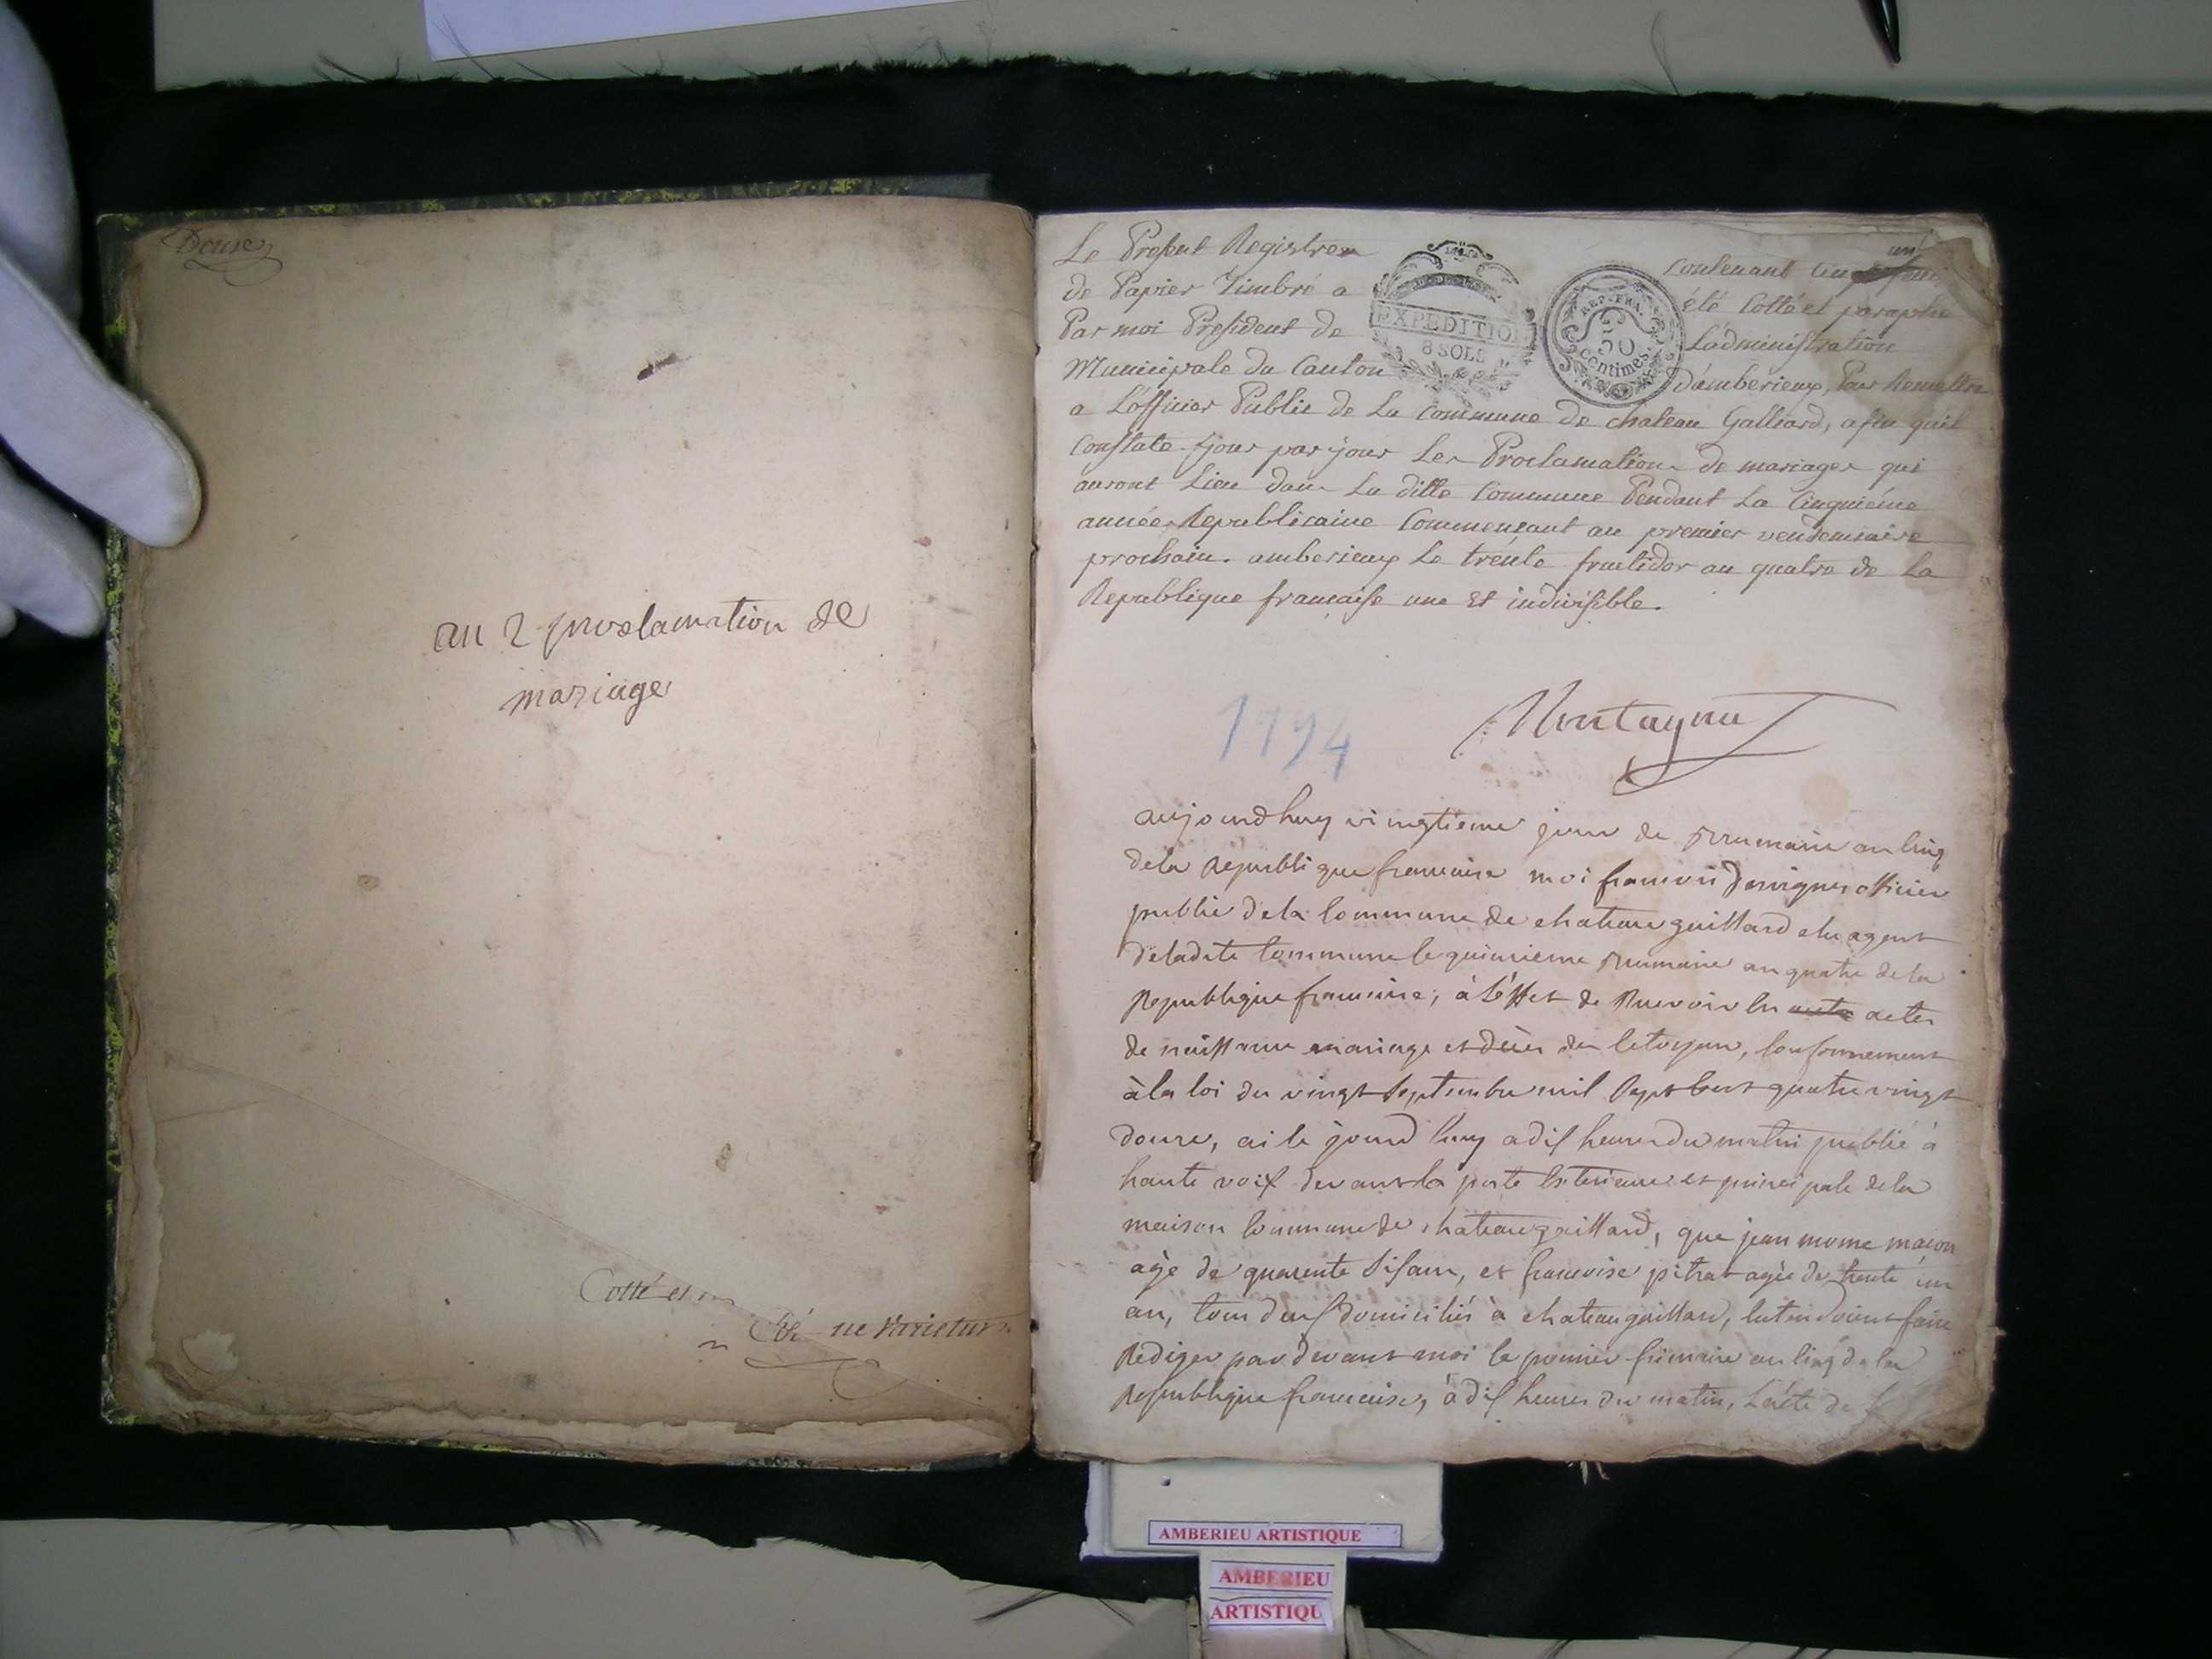 Douze
an 2 proclamation de
mariage
Cotté et
ne varietur
Le Présent Registre
de Papier Timbré a
Par moi President de
Municipale du Canton
EXPEDITION
8 SOLS
REP. FRA.
50
centimes.
un
Contenant
été Cotté et paraphé
L'administration
d'amberieux, Pour Remettre
a L'officier Public de La Commune de chateau Galliard, afin quil
Constate jour par jour Les Proclamations de mariages qui
auront Lieu dans La ditte Commune Pendant La Cinquiéme
année Republicaine Commencant au premier vendemiaire
prochain. amberieux Le trente fructidor an quatre de La
Republique francaise une Et indivisible.
Montagnu
1794
aujourdhuy vingtieme jour de Brumaire an cinq
de la Republique francaise moi francois officier
public de la Commune de chateau gaillard elu agent
de ladite Commune le quinzieme Brumaire an quatre de la
Republique francaise, à l'éffet de Recevoir les acte actes
de naissance mariage et décès des Citoyens, Conformement
à la loi du vingt Septembre mil Sept Cent quatre vingt
douze, ai le jourd huy a dix heures du matin publié à
haute voix devant la porte Exterieure et principale de la
maison Commune de chateau gaillard, que jean mome macon
âgé de quarente Six ans, et francoise pitrat agée de trente un
an, tous deux domiciliés à chateau gaillard, Entendoient faire
Rediger par devant moi le premier frimaire an cinq de la
Republique francaise, à dix heures du matin, L'acte de
AMBERIEU ARTISTIQUE
AMBERIEU
ARTISTIQU